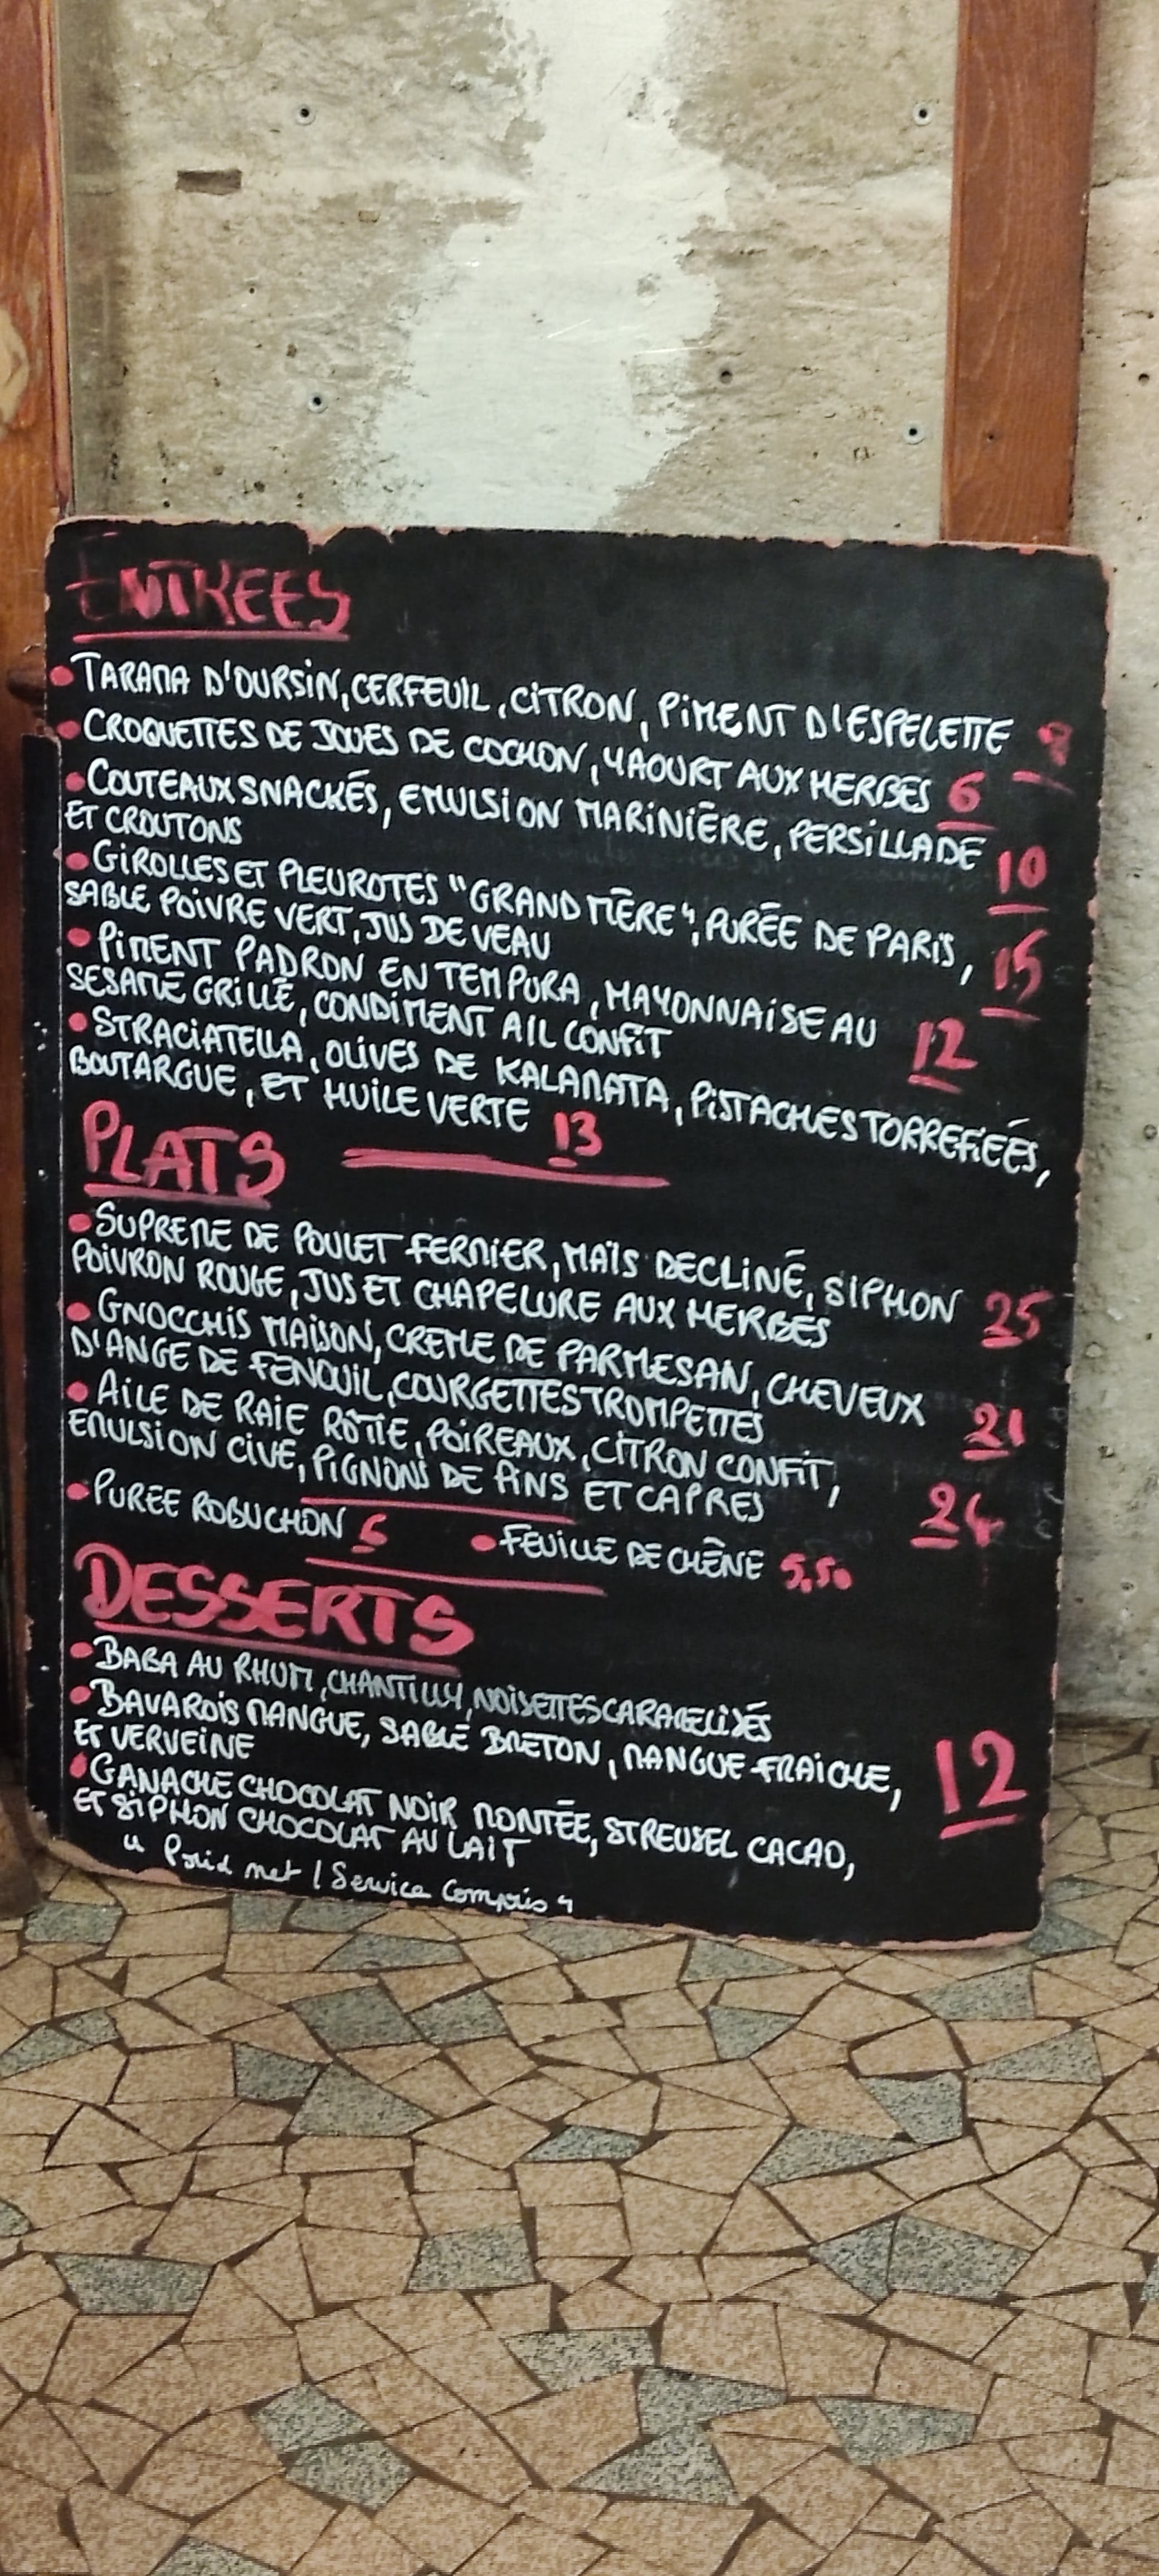 ENTREES
• TARAMA D'OURSIN, CERFEUIL, CITRON, PIMENT D'ESPELETTE
• CROQUETTES DE JOUES DE COCHON, YAOURT AUX HERBES 6
• COUTEAUX SNACKÉS, EMULSION MARINIÈRE, PERSILLADE
ET CROUTONS 10
• GIROLLES ET PLEUROTES "GRAND MÈRE", PURÉE DE PARIS,
SABLE POIVRE VERT, JUS DE VEAU 15
• PIMENT PADRON EN TEMPURA, MAYONNAISE AU
SESAME GRILLÉ, CONDIMENT AIL CONFIT 12
• STRACIATELLA, OLIVES DE KALAMATA, PISTACHES TORREFIÉES,
BOUTARGUE, ET HUILE VERTE 13
PLATS
• SUPREME DE POULET FERMIER, MAÏS DECLINÉ, SIPHON
POIVRON ROUGE, JUS ET CHAPELURE AUX HERBES 25
• GNOCCHIS MAISON, CREME DE PARMESAN, CHEVEUX
D'ANGE DE FENOUIL, COURGETTES TROMPETTES 21
• AILE DE RAIE RÔTIE, POIREAUX, CITRON CONFIT,
EMULSION CIVE, PIGNONS DE PINS ET CAPRES 24
• PUREE ROBUCHON 5 • FEUILLE DE CHÊNE 5,50
DESSERTS
• BABA AU RHUM, CHANTILLY, NOISETTES CARAMELISÉS
• BAVAROIS MANGUE, SABLÉ BRETON, MANGUE FRAICHE,
ET VERVEINE 12
• GANACHE CHOCOLAT NOIR MONTÉE, STREUSEL CACAO,
ET SIPHON CHOCOLAT AU LAIT
" Prix net / Service Compris "